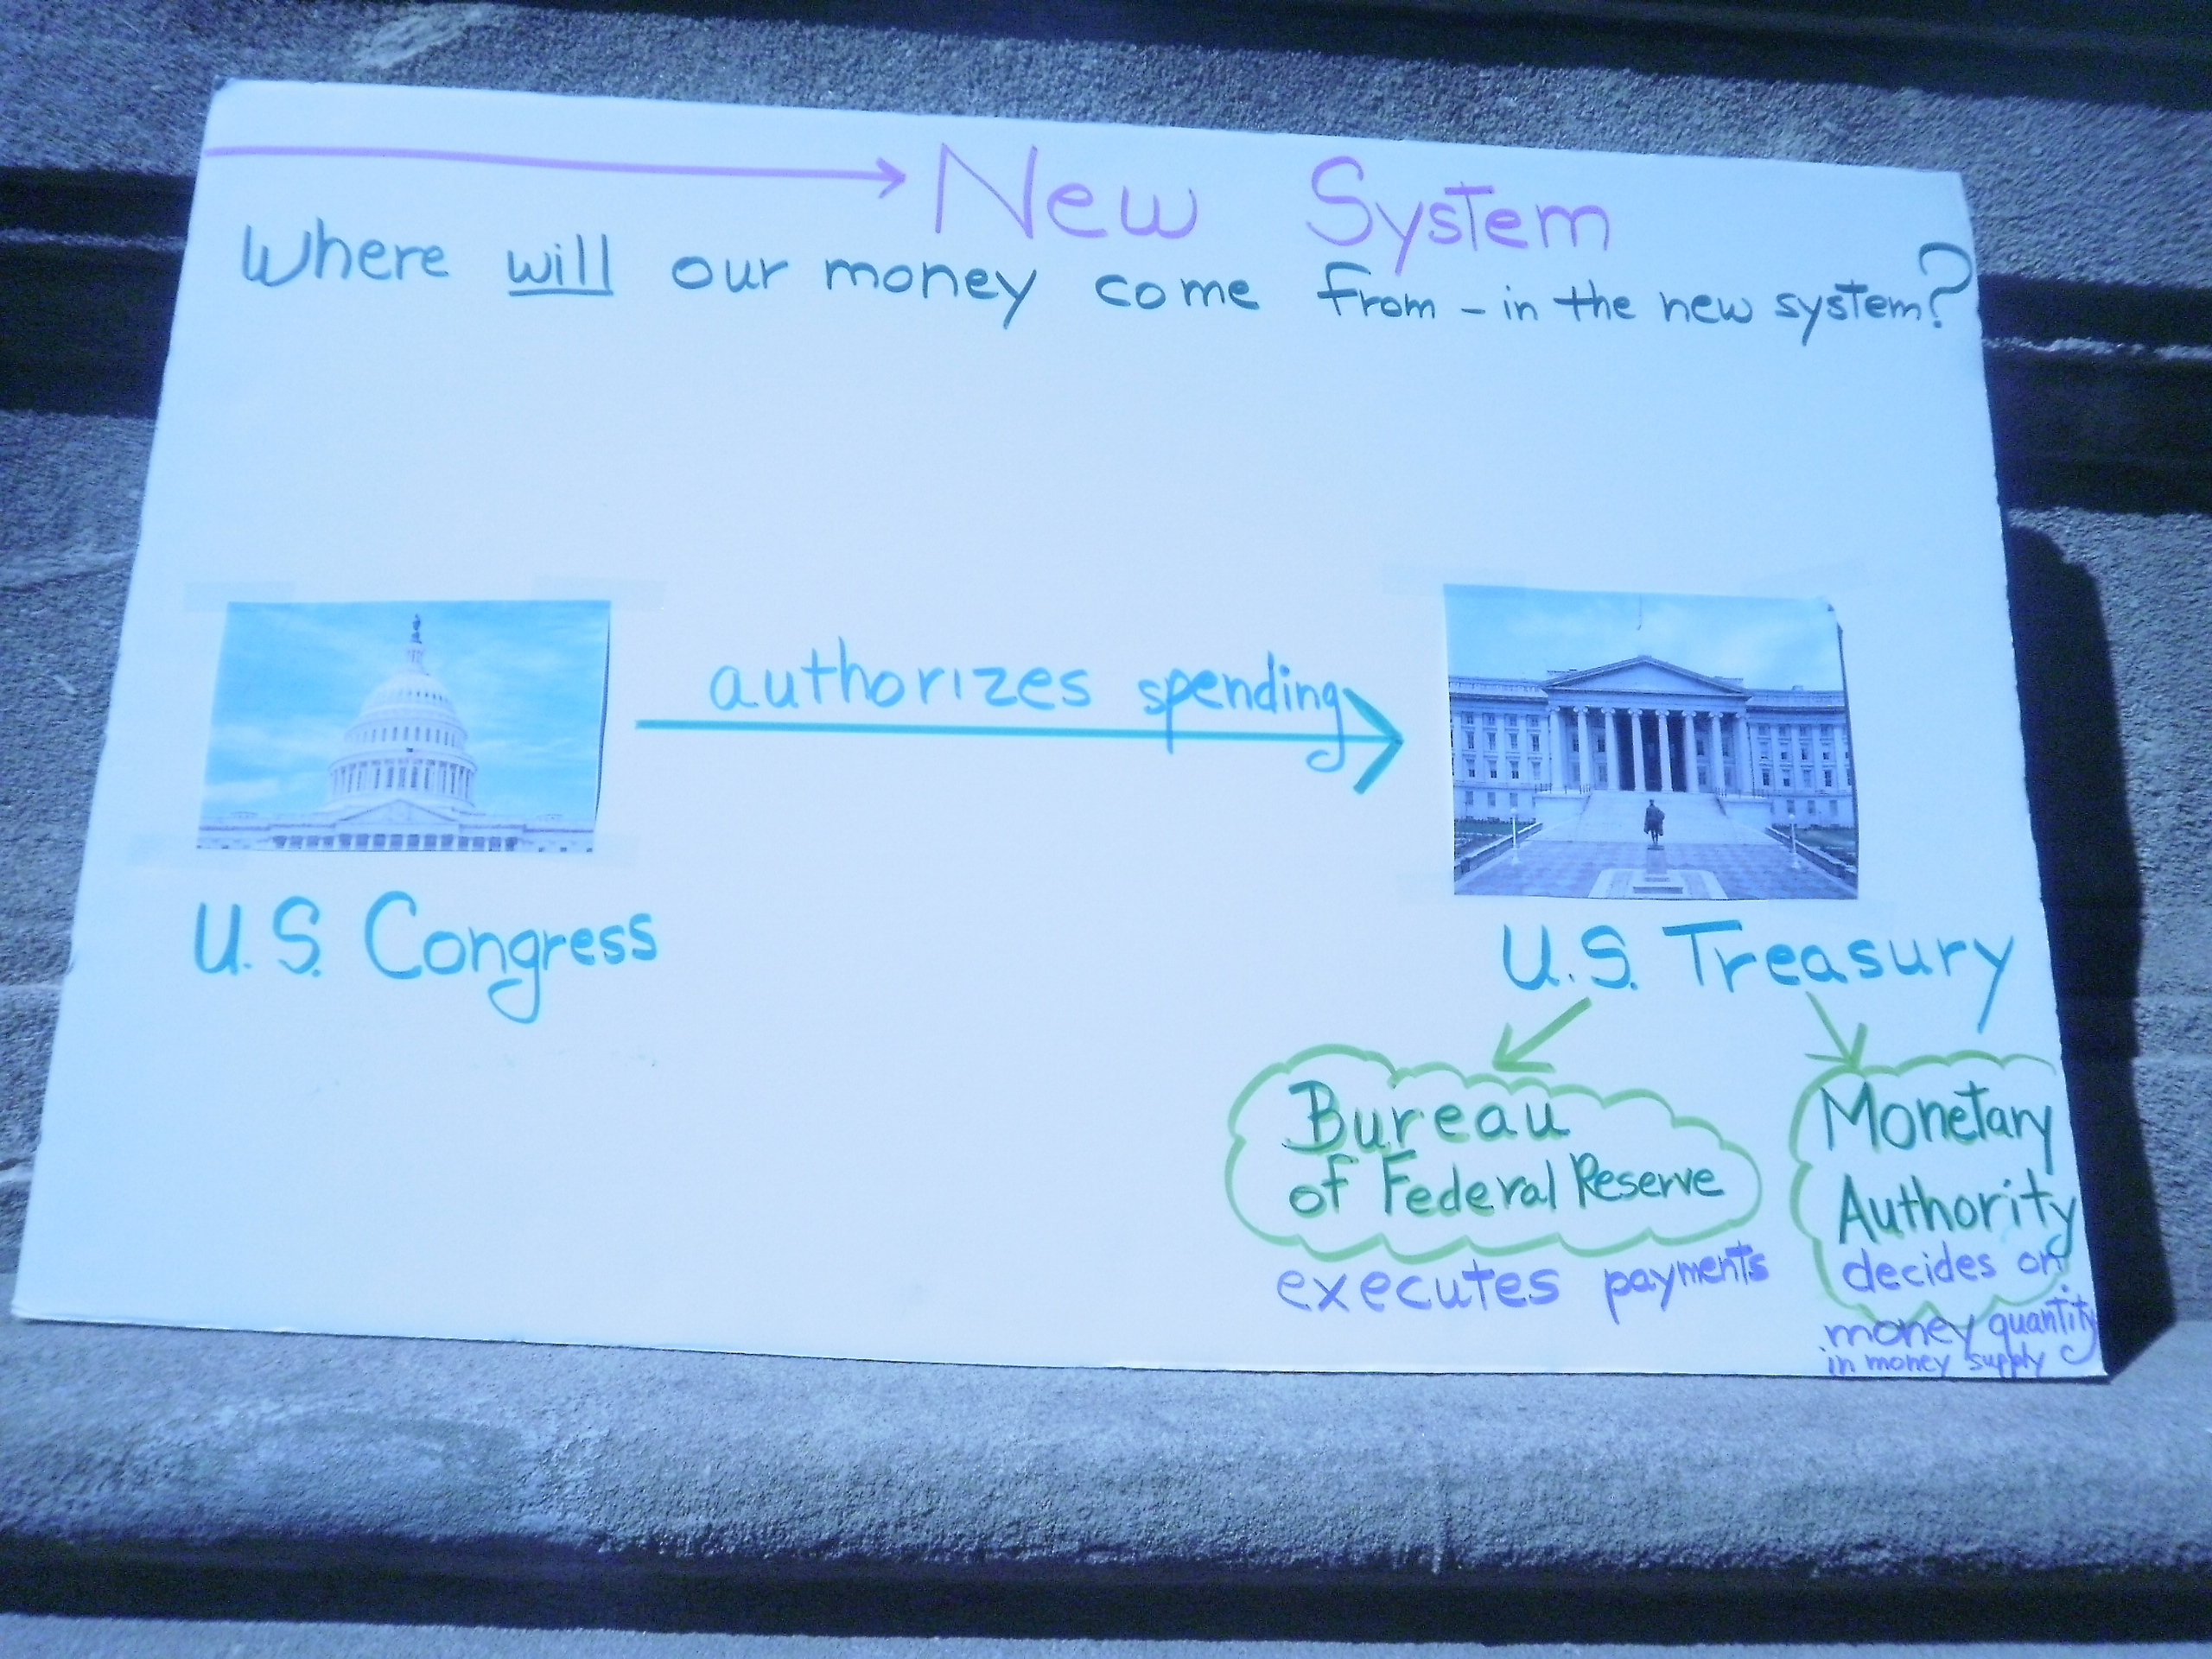 New System
Where will our money come from - in the new system?
authorizes spending
U.S. Congress
U.S. Treasury
Bureau
of Federal Reserve
executes payments
Monetary
Authority
decides on
money quantity
in money supply